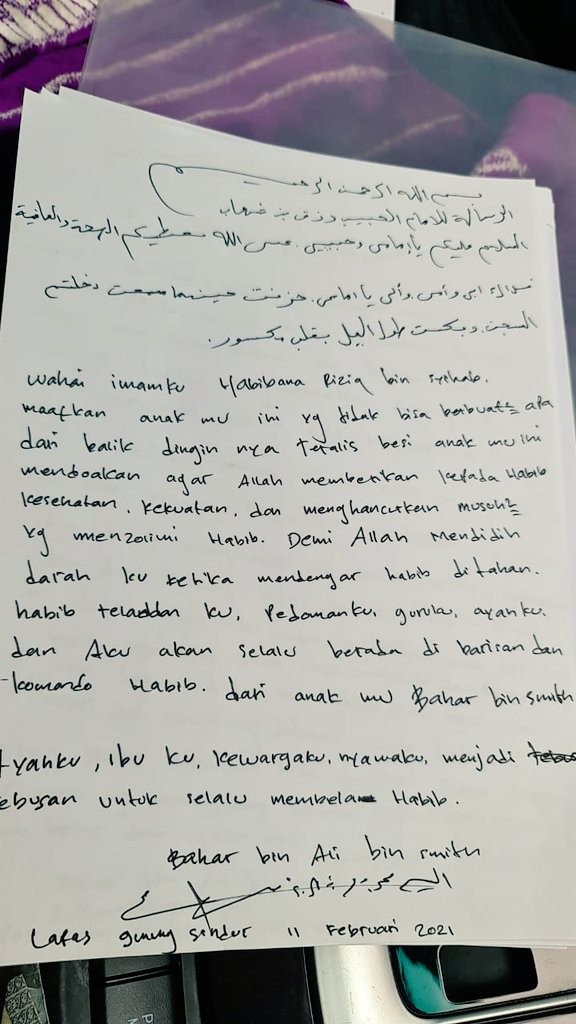 بسم الله الرحمن الرحيم
الرسالة للامام الحبيب رزق بن شهاب
السلام عليكم يا إمامي وحبيبي. عسى الله يعطيكم الصحة والعافية
فداك ابي وأمي. وأني يا إمامي. حزنت حينما سمعت دخلتم
السجن. وبكيت طول اليل بقلب مكسور.
wahai imamku Habibana Riziq bin syihab.
maafkan anak mu ini yg tidak bisa berbuat2 apa
dari balik dingin nya teralis besi anak mu ini
mendoakan agar Allah memberikan kepada Habib
kesehatan, kekuatan, dan menghancurkan musoh2
yg menzolimi Habib. Demi Allah Mendidih
darah ku ketika mendengar habib ditahan.
habib teladdan ku, Pedomanku, guruku, ayahku.
dan Aku akan selalu berada di barisan dan
komando Habib. dari anak mu Bahar bin smith
Ayahku, ibu ku, kewargaku, nyawaku, menjadi
tebusan untuk selalu membela Habib.
Bahar bin Ali bin smith
Lapas gunung sindur 11 Februari 2021